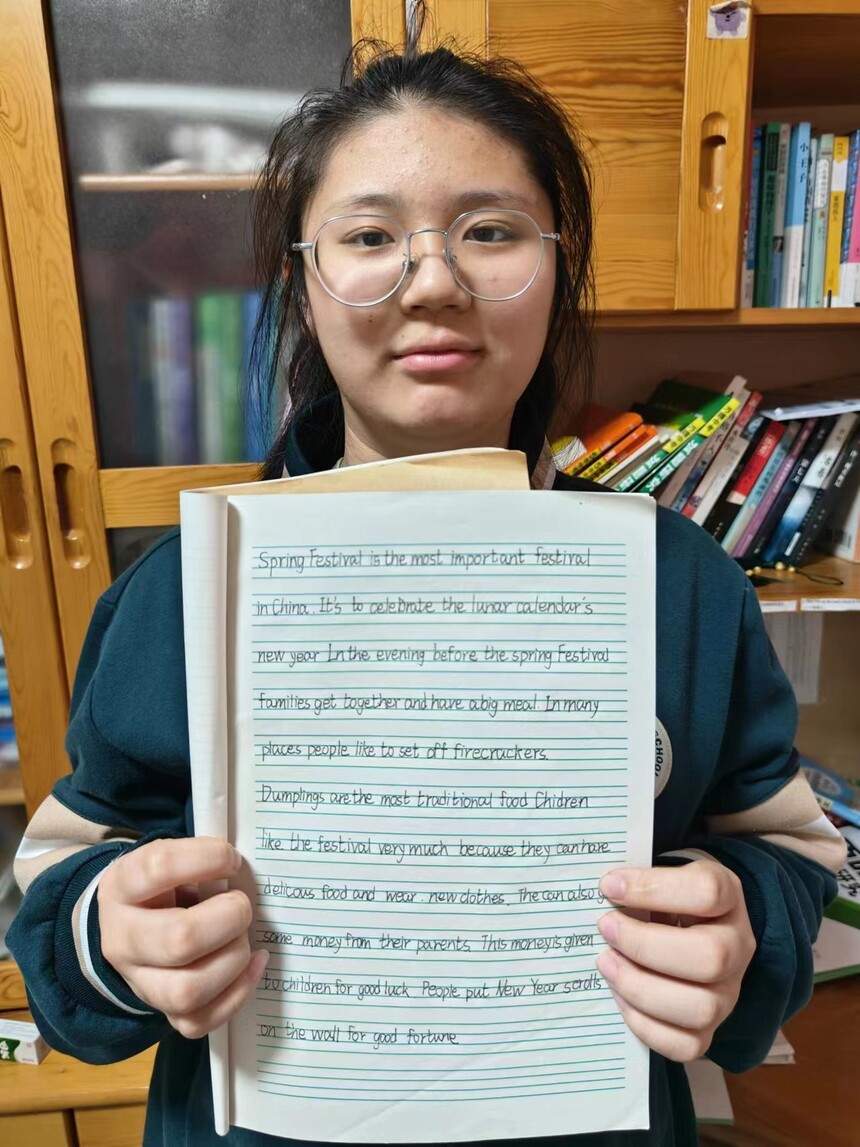 小王子
Spring Festival is the most important festival
in China. It's to celebrate the lunar calendar's
new year In the evening before the spring Festival
families get together and have a big meal. In many
places people like to set off firecruckers.
Dumplings are the most traditional food Chidren
like the festival very much because they can have
delicous food and wear. new clothes. The can also g
some money from their parents. This money is given
to children for good luck People put New Year scrolls
on the wall for good fortune
CHOOL